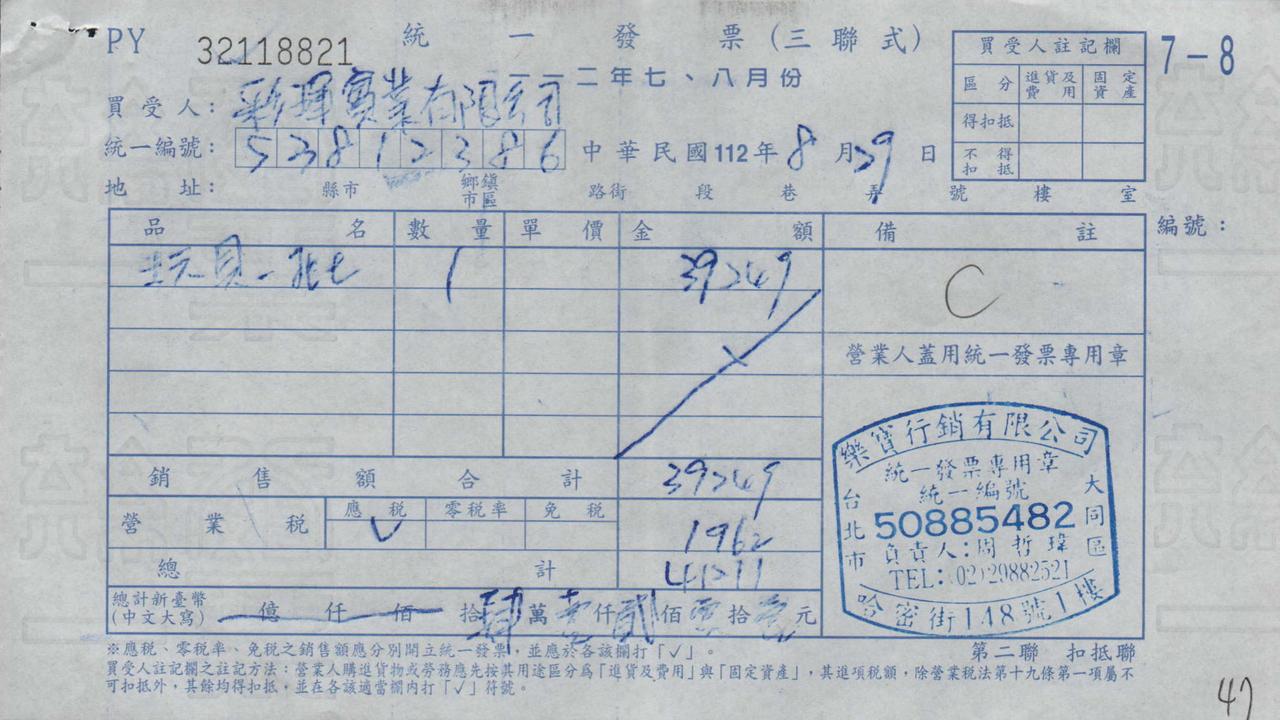 PY 32118821 統一發票(三聯式)
一一二年七、八月份
7-8
買受人註記欄
區分 進貨及費用 固定資產
得扣抵
不得扣抵
買受人:彩琿實業有限公司
統一編號:53812386 中華民國112年8月29日
地址: 縣市 鄉鎮市區 路街 段 巷 弄 號 樓 室
品名 數量 單價 金額 備註 編號:
玩具一批 1 39249 C
營業人蓋用統一發票專用章
銷售額合計 39249
營業稅 應稅 零稅率 免稅 1962
V
總計 41211
總計新臺幣(中文大寫) 億 仟 佰 拾 肆 萬 壹 仟 貳 佰 壹 拾 壹 元
樂寶行銷有限公司
統一發票專用章
統一編號
50885482
負責人:周哲瑋
TEL:(02)29882521
台北市 大同區
哈密街148號1樓
※應稅、零稅率、免稅之銷售額應分別開立統一發票,並應於各該欄打「√」。
第二聯 扣抵聯
買受人註記欄之註記方法:營業人購進貨物或勞務應先按其用途區分為「進貨及費用」與「固定資產」,其進項稅額,除營業稅法第十九條第一項屬不
可扣抵外,其餘均得扣抵,並在各該適當欄內打「√」符號。
47